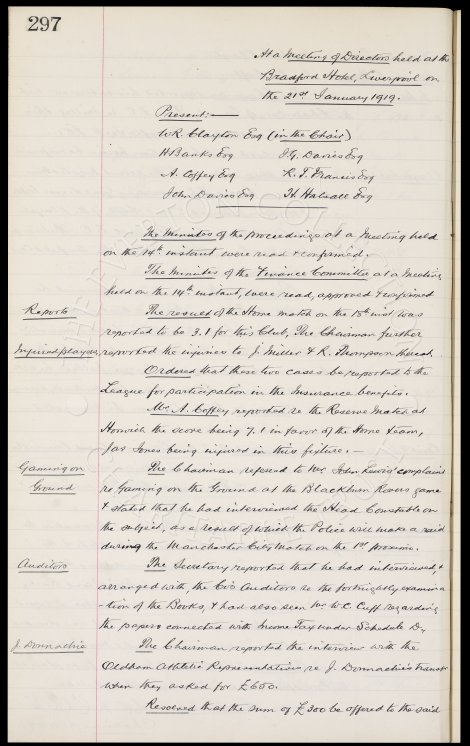 297
At a Meeting of Directors held at the
Bradford Hotel, Liverpool on
the 21st January 1919.
Present:—
W.R. Clayton Esq (in the Chair)
H Banks Esq J.G. Davies Esq
A. Coffey Esq R.T. Francis Esq
John Davies Esq H. Halsall Esq
The Minutes of the proceedings at a Meeting held
on the 14th instant were read & confirmed.
The Minutes of the Finance Committee at a Meeting
held on the 14th instant, were read, approved & confirmed
Reports The result of the Home Match on the 18th inst was
reported to be 3.1 for this Club, The Chairman further
Injured players reported the injuries to J. Miller & R. Thompson thereat.
Ordered that these two cases be reported to the
League for participation in the Insurance benefits.
Mr A. Coffey reported re the Reserve Match at
Horwich the score being 7.1 in favor of the Home team,
Jas Jones being injured in this fixture.—
Gaming on The Chairman referred to Mr John Lewis' complaint
Ground re Gaming on the Ground at the Blackburn Rovers game
& stated that he had interviewed the Head Constable on
the subject, as a result of which the Police will make a raid
during the Manchester City Match on the 1st proximo.
Auditors The Secretary reported that he had interviewed, &
arranged with, the Co's Auditors re the fortnightly examina
tion of the Books, & had also seen Mr W.C. Cuff regarding
the papers connected with Income Tax under Schedule D.
J. Donnachie The Chairman reported the interview with the
Oldham Athletic Representatives re J. Donnachie's Transfer
when they asked for £650.
Resolved that the sum of £300 be offered to the said